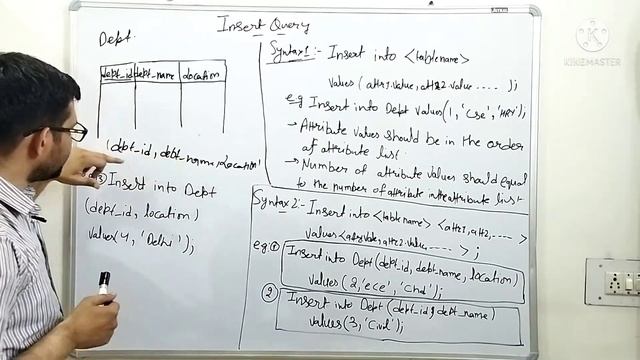 Insert Query
Dept.
dept_id dept_name location
(dept_id, dept_name, location)
③ Insert into Dept
(dept_id, location)
values(4, 'Delhi');
Syntax1:- Insert into <tablename>
values(attr1.value, attr2.value ....);
e.g Insert into Dept values(1, 'Cse', 'HR');
→ Attribute values should be in the order
of attribute list.
→ Number of attribute values should equal
to the number of attribute in the attribute list
Syntax 2:- Insert into <table name> <attr1, attr2, ---->
values<attr1.value, attr2.value, ---- >;
e.g. ① Insert into Dept(dept_id, dept_name, location)
values(2, 'ece', 'Chd');
② Insert into Dept (dept_id, dept_name)
values(3, 'Civil');
KINEMASTER